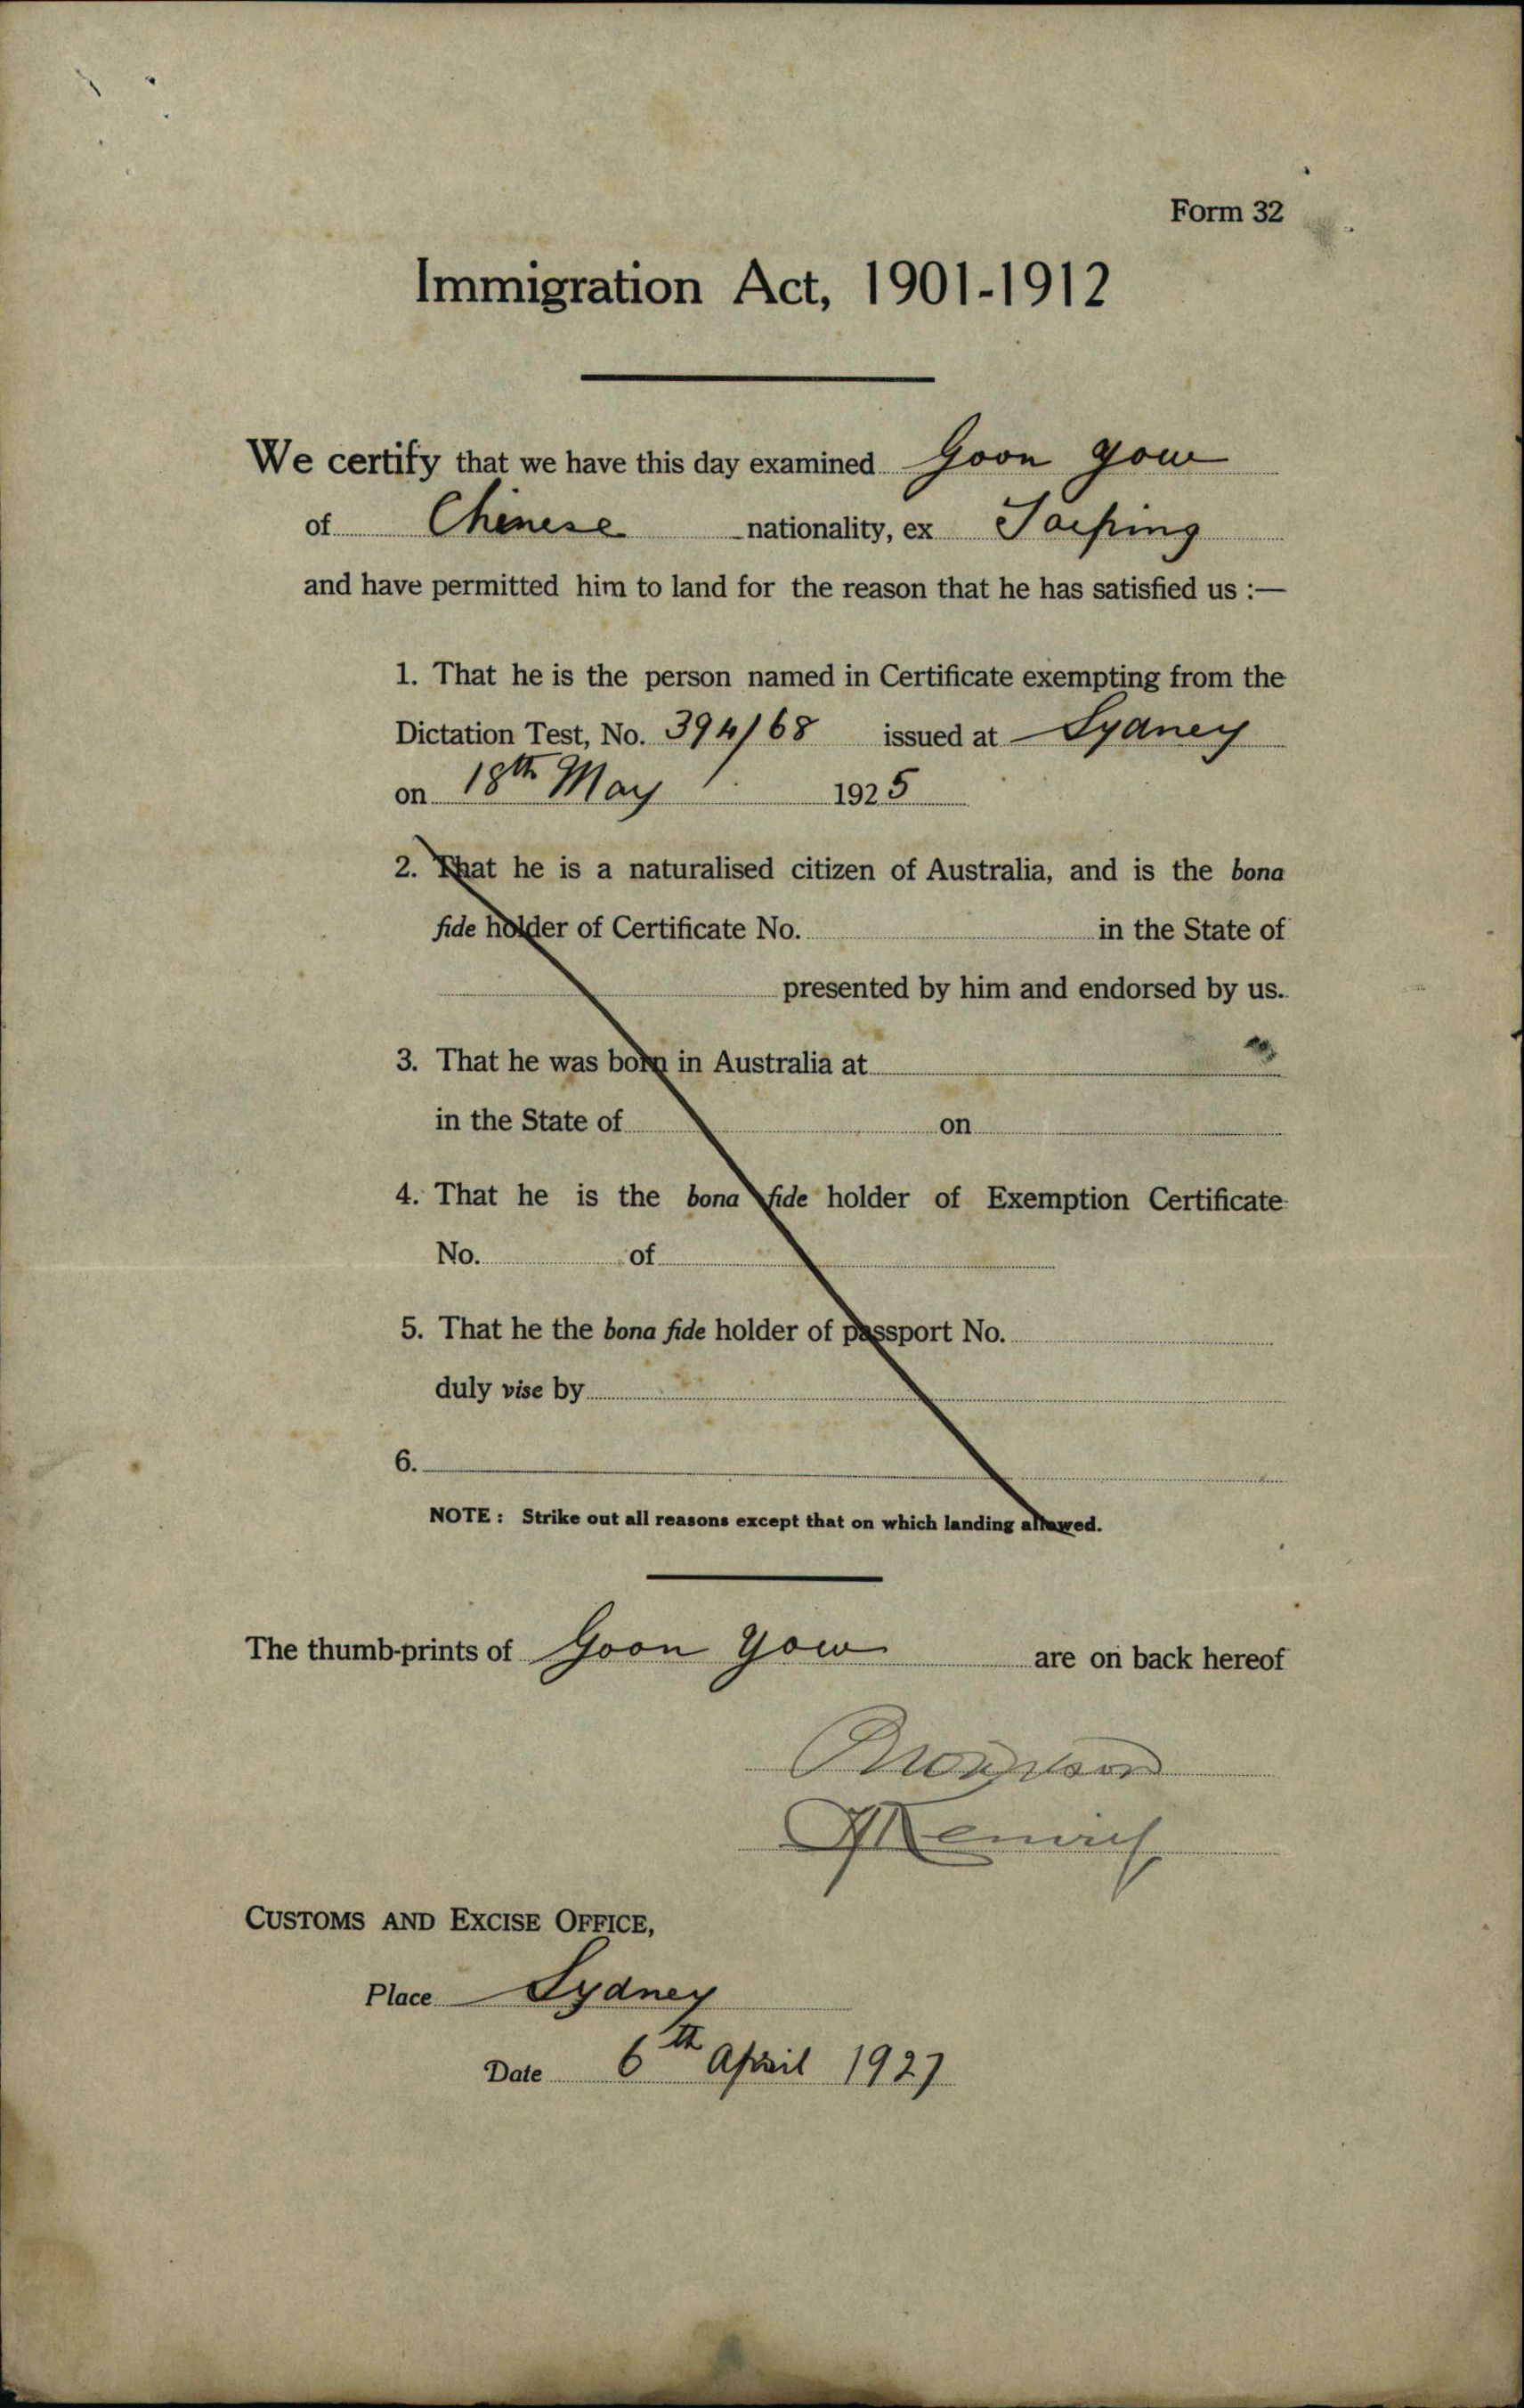 Form 32
Immigration Act, 1901-1912
We certify that we have this day examined Goon Yow
of Chinese nationality, ex Taiping
and have permitted him to land for the reason that he has satisfied us :—
1. That he is the person named in Certificate exempting from the
Dictation Test, No. 394/68 issued at Sydney
on 18th May 1925
2. That he is a naturalised citizen of Australia, and is the bona
fide holder of Certificate No. in the State of
presented by him and endorsed by us.
3. That he was born in Australia at
in the State of on
4. That he is the bona fide holder of Exemption Certificate
No. of
5. That he the bona fide holder of passport No.
duly vise by
6.
NOTE : Strike out all reasons except that on which landing allowed.
The thumb-prints of Goon Yow are on back hereof
CUSTOMS AND EXCISE OFFICE,
Place Sydney
Date 6th April 1927